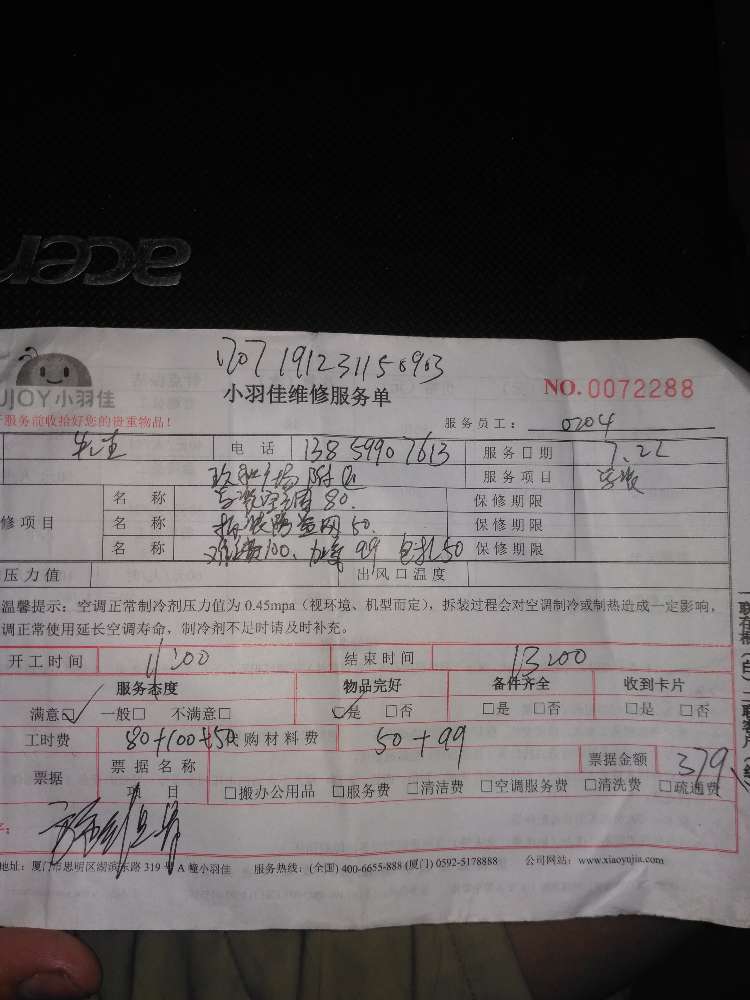 acer
191231150903
UJOY小羽佳
小羽佳维修服务单
NO.0072288
服务前收拾好您的贵重物品！
服务员工： 0204
电 话 13859907613 服务日期 7.22
附近 服务项目
修项目
名 称 空调 80. 保修期限
名 称 50. 保修期限
名 称 100、加 99 50 保修期限
压力值 出风口温度
温馨提示：空调正常制冷剂压力值为 0.45mpa（视环境、机型而定），拆装过程会对空调制冷或制热造成一定影响，
调正常使用延长空调寿命，制冷剂不足时请及时补充。
开工时间 11:00 结束时间 13:00
服务态度 物品完好 备件齐全 收到卡片
满意☑ 一般□ 不满意□ ☑是 □否 □是 □否 □是 □否
工时费 80+100+50 代购材料费 50+99
票据 票据名称 票据金额 379
项 目 □搬办公用品 □服务费 □清洁费 □空调服务费 □清洗费 □疏通费
地址：厦门市思明区湖滨东路 319 号 A 幢小羽佳 服务热线：(全国) 400-6655-888 (厦门) 0592-5178888 公司网站：www.xiaoyujia.com